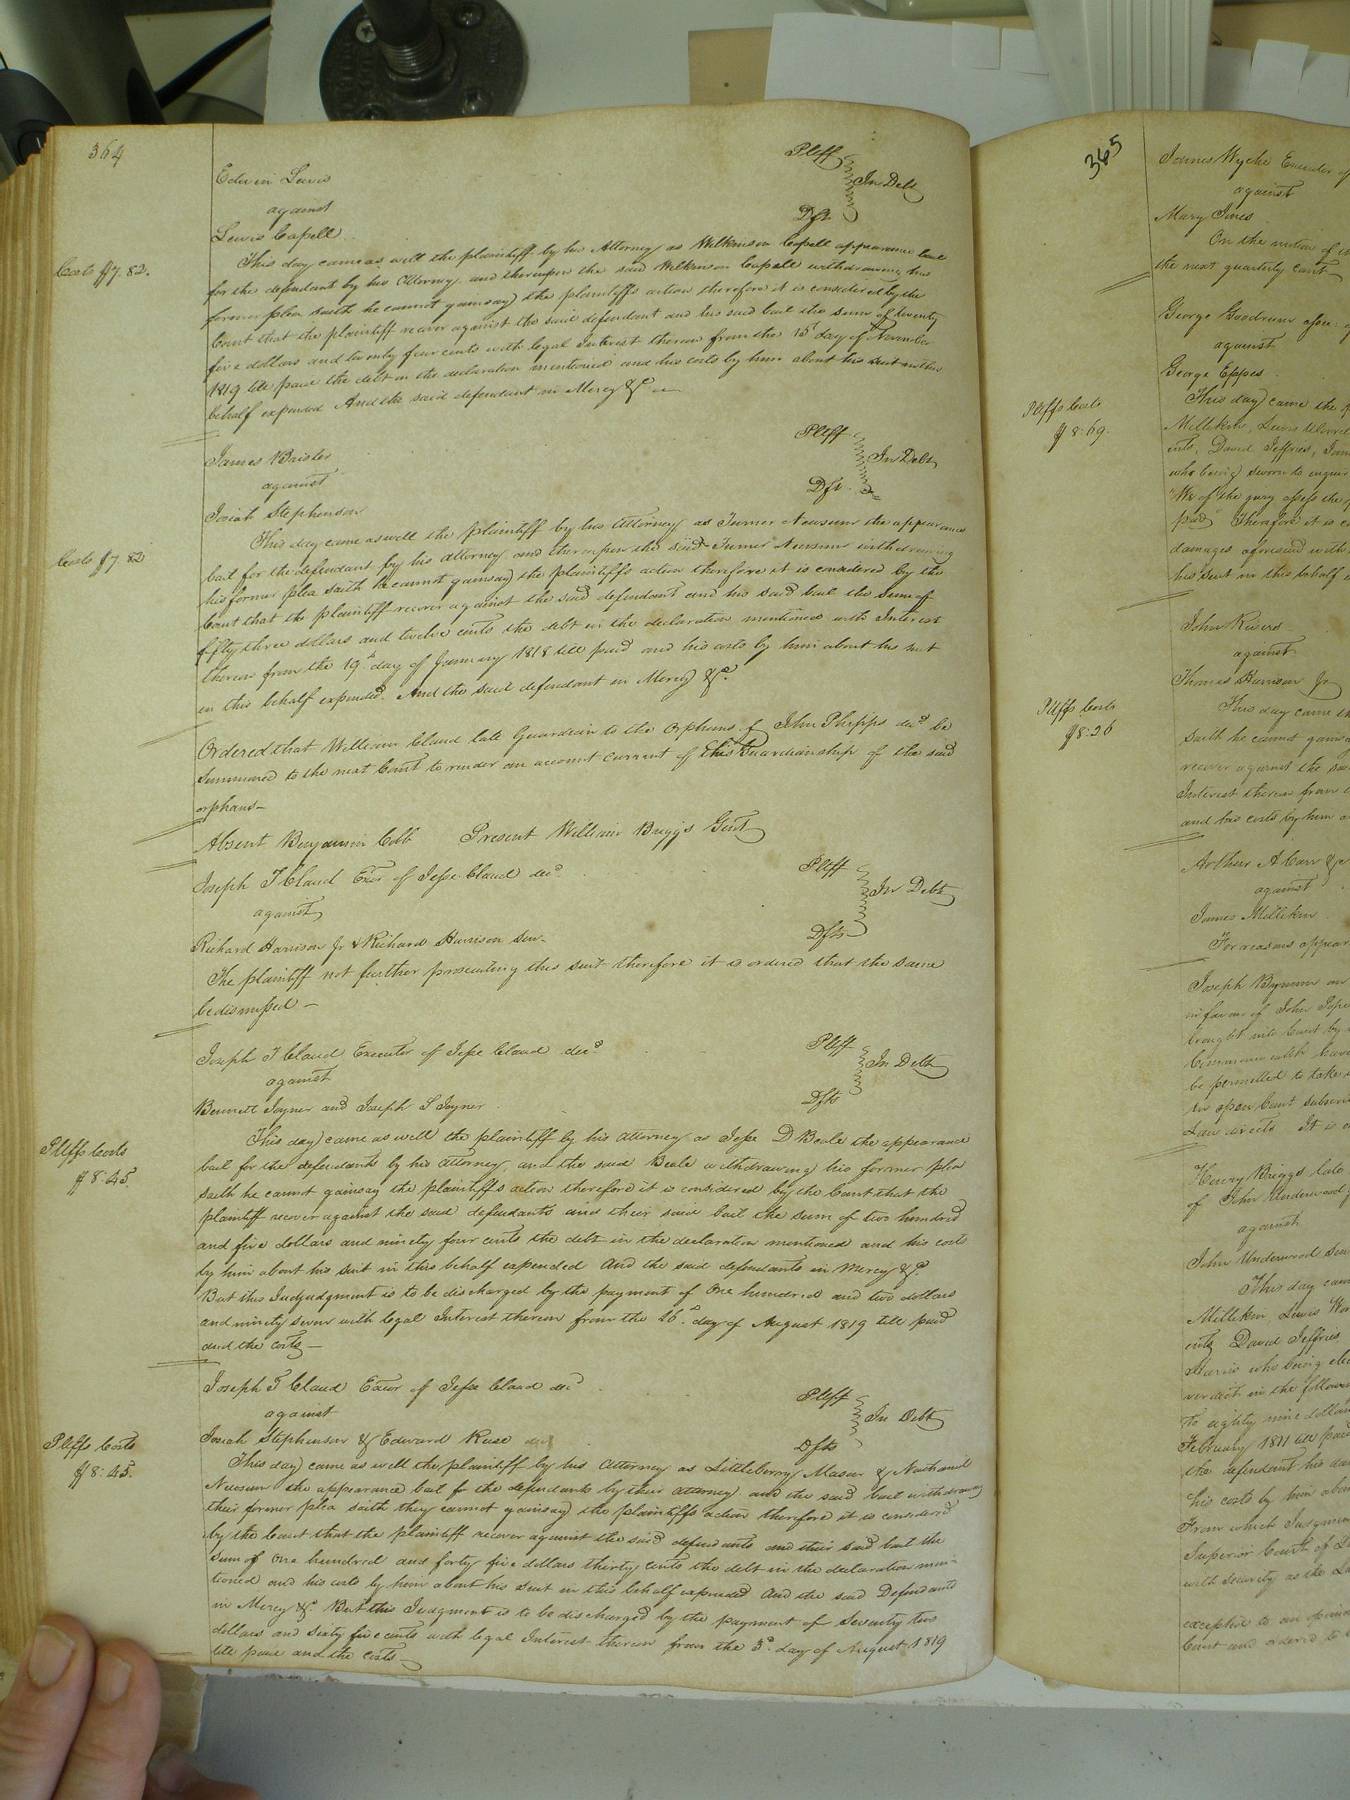 364
Pltff
Edwin Lewis
In Debt
against
Dft.
Lewis Capell
Costs $7.82.
This day came as well the plaintiff by his Attorney as Wilkinson Capell appearance bail
for the defendant by his Attorney and thereupon the said Wilkinson Capell withdrawing his
former plea saith he cannot gainsay the plaintiffs action therefore it is considered by the
Court that the plaintiff recover against the said defendant and his said bail the sum of twenty
five dollars and twenty four cents with legal Interest thereon from the day of November
1819 till paid the debt in the declaration mentioned and his costs by him about his suit in this
behalf expended And the said defendant in Mercy &c
James
Pltff
In Debt
against
Dft.
Josiah Stephenson
Costs $7.82
This day came as well the plaintiff by his Attorney as Turner Newsum the appearance
bail for the defendant by his attorney and thereupon the said Turner Newsum withdrawing
his former plea saith he cannot gainsay the plaintiffs action therefore it is considered by the
Court that the plaintiff recover against the said defendant and his said bail the sum of
fifty three dollars and twelve cents the debt in the declaration mentioned with Interest
thereon from the 19th day of January 1818 till paid and his costs by him about his suit
in this behalf expended. And the said defendant in Mercy &c.
Ordered that William Claud late Guardian to the Orphans of John Phipps decd be
Summoned to the next Court to render an account current of his Guardianship of the said
orphans—
Absent Benjamin Cobb Present William Briggs Gent
Joseph T Claud Exor of Jesse Claud decd
Pltff
In Debt
against
Dfts
Richard Harrison Jr & Richard Harrison Sen.
The plaintiff not further prosecuting this suit therefore it is ordered that the same
be dismissed—
Joseph T Claud Executor of Jesse Claud decd
Pltff
In Debt
against
Dfts
Bennett Joyner and Joseph S Joyner
Pltffs Costs
$8.45.
This day came as well the plaintiff by his attorney as Jesse D Beale the appearance
bail for the defendants by his Attorney, and the said Beale withdrawing his former plea
saith he cannot gainsay the plaintiffs action therefore it is considered by the Court that the
plaintiff recover against the said defendants and their said bail the sum of two hundred
and five dollars and ninety four cents the debt in the declaration mentioned and his costs
by him about his suit in this behalf expended And the said defendants in Mercy &c.
But this Judgudgment is to be discharged by the payment of One hundred and two dollars
and ninety seven with legal Interest thereon from the 26th day of August 1819 till paid
and the costs—
Joseph T Claud Exor of Jesse Claud decd
Pltff
In Debt
against
Dfts
Josiah Stephenson & Edward Ruse
Pltffs Costs
$8.45.
This day came as well the plaintiff by his Attorney as Littleberry Mason & Nathaniel
Newsum the appearance bail for the defendants by their attorney and the said bail withdrawing
their former plea saith they cannot gainsay the plaintiffs action therefore it is considered
by the Court that the plaintiff recover against the said defendants and their said bail the
Sum of One hundred and forty five dollars thirty cents the debt in the declaration men
tioned and his costs by him about his suit in this behalf expended And the said Defendants
in Mercy &c. But this Judgment is to be discharged by the payment of Seventy two
dollars and sixty five cents with legal Interest thereon from the 3d. day of August 1819
till paid and the Costs—
365
James Wyche Executor of
against
Mary Jines
On the motion of
the next quarterly court
George Goodrum assee: of
against
George Eppes
Pltffs Costs
$8.69.
This day came the
Millikin, Lewis
David Jeffries,
who being sworn to
We of the jury assess the
paid Therefore it is
damages aforesaid with
his suit in this behalf
John Rivers
against
Thomas Harrison Jr
Pltffs Costs
$8.26
This day came the
saith he cannot gainsay
recover against the said
Interest thereon from
and his costs by him
Arthur A Carr &
against
James Millikin
For reasons appear
Joseph Bynum
in favor of John
brought into Court by
Commonwealth have
be permitted to take
in open Court
Law directs It is
Henry Briggs late
of John Underwood
against
John Underwood Sen
This day came
Millikin Lewis
David Jeffries
Harris who being
verdict in the following
to eighty nine dollars
February 1811 till paid
the defendant his
his costs by him about
From which Judgment
Superior Court of
with security as the
exception to an opinion
Court and ordered to